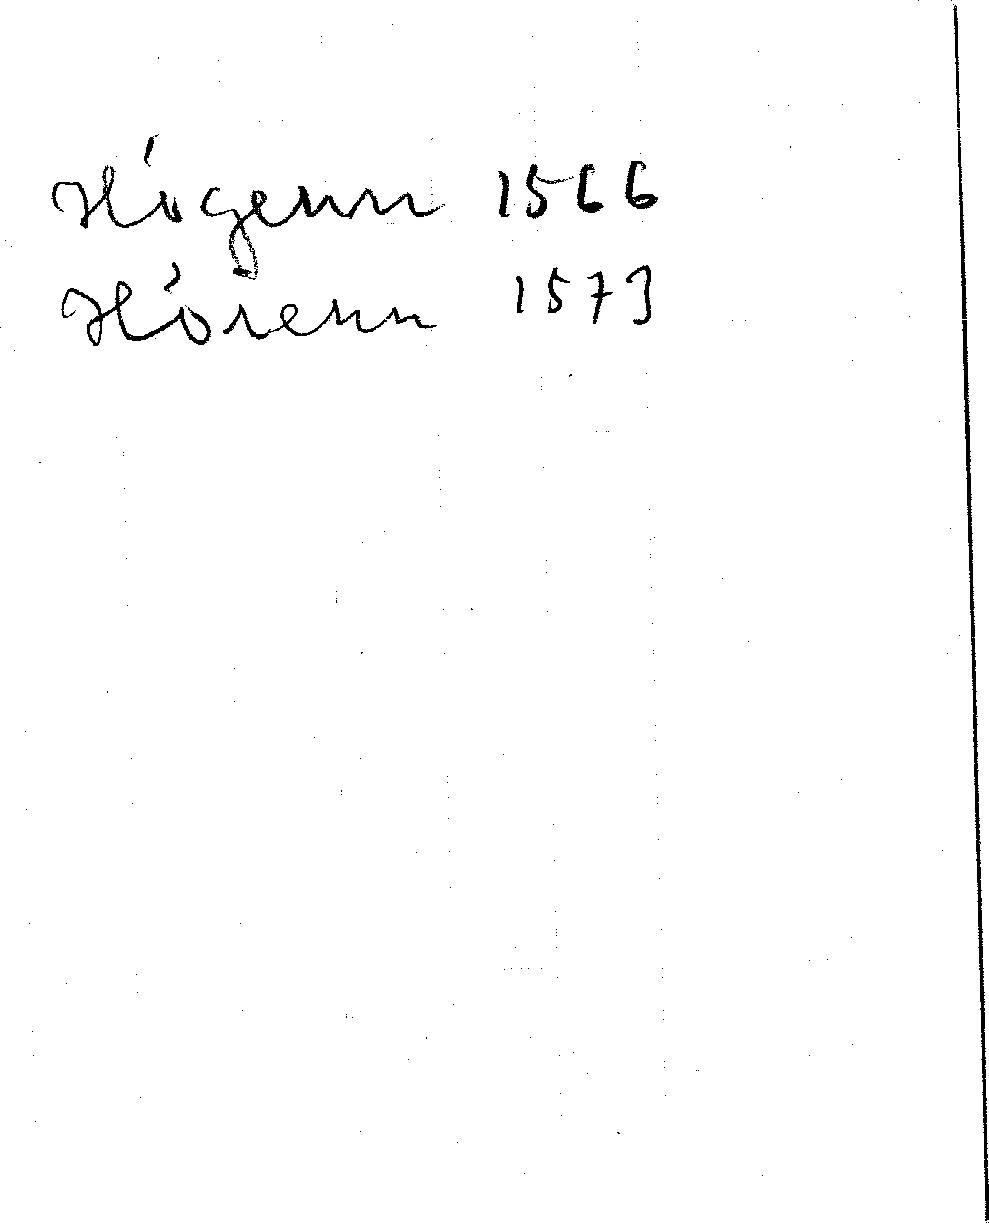 Hógenn 1566
Hórenn 1573